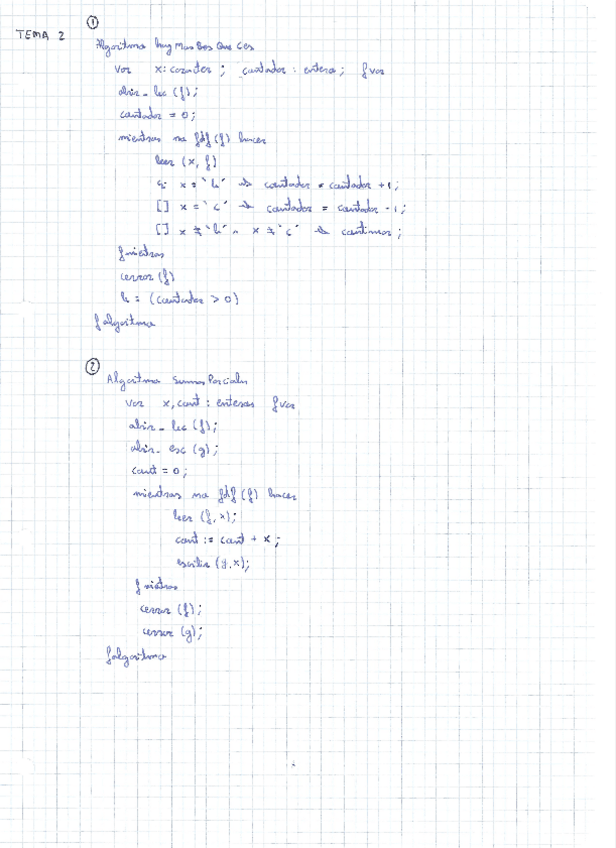 TEMA 2
①
Algoritmo hay mas bes que ces
var x: caracter ; contador : entero ; fvar
abrir_lec (f);
contador = 0;
mientras no fdf (f) hacer
leer (x, f)
si x = 'b' → contador = contador +1;
[] x = 'c' → contador = contador -1;
[] x ≠ 'b' ∧ x ≠ 'c' → continuar;
fmientras
cerrar (f)
b = (contador > 0)
falgoritmo
②
Algoritmo Sumas Parciales
var x, cont : enteros fvar
abrir_lec (f);
abrir_esc (g);
cont = 0;
mientras no fdf (f) hacer
leer (f, x);
cont := cont + x;
escribir (g, x);
fmientras
cerrar (f);
cerrar (g);
falgoritmo